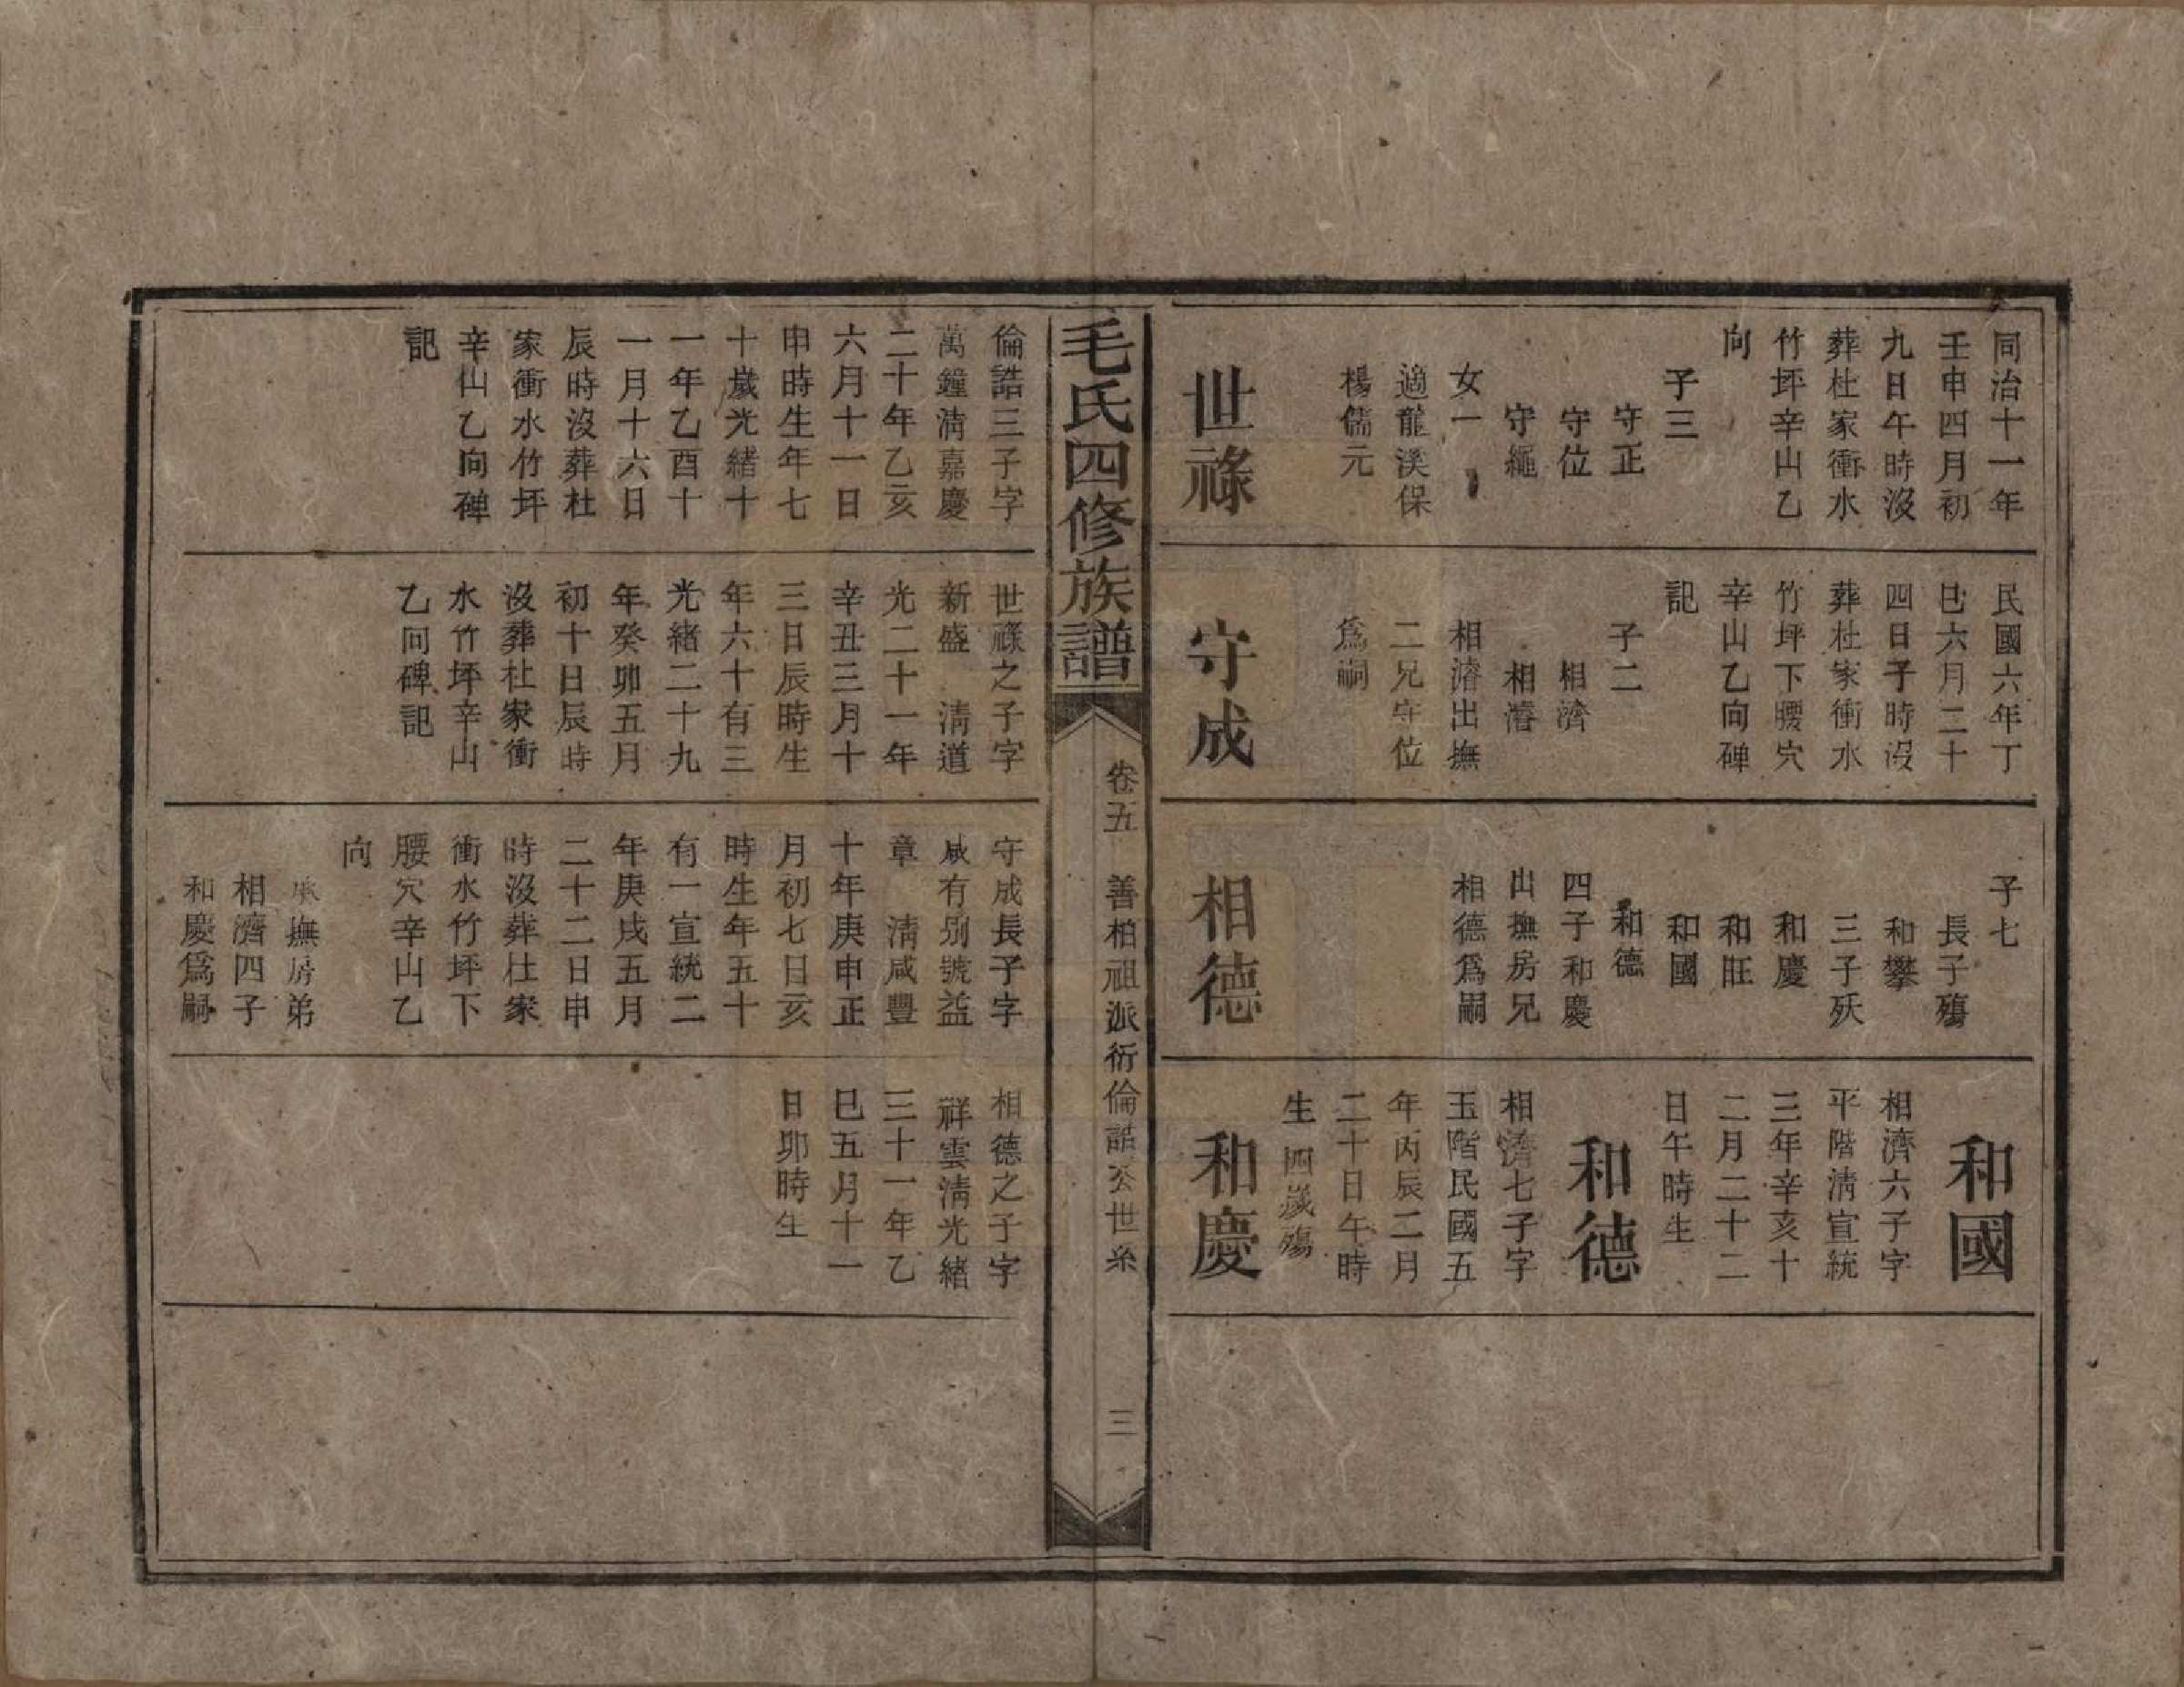 同治十一年
壬申四月初
九日午時沒
葬杜家衝水
竹坪辛山乙
向
子三
守正
守位
守繩
女一
適龍溪保
楊儒元
世祿
民國六年丁
巳六月二十
四日子時沒
葬杜家衝水
竹坪下腰穴
辛山乙向碑
記
子二
相濟
相濬
相濬出撫
二兄守位
爲嗣
守成
子七
長子殤
和攀
三子殀
和慶
和旺
和國
和德
四子和慶
出撫房兄
相德爲嗣
相德
和國
相濟六子字
平階清宣統
三年辛亥十
二月二十二
日午時生
和德
相濟七子字
玉階民國五
年丙辰二月
二十日午時
生四歲殤
和慶
毛氏四修族譜
卷五
善柏祖派衍倫誥公世系
三
倫誥三子字
萬鐘清嘉慶
二十年乙亥
六月十一日
申時生年七
十歲光緒十
一年乙酉十
一月十六日
辰時沒葬杜
家衝水竹坪
辛山乙向碑
記
世祿之子字
新盛 清道
光二十一年
辛丑三月十
三日辰時生
年六十有三
光緒二十九
年癸卯五月
初十日辰時
沒葬杜家衝
水竹坪辛山
乙向碑記
守成長子字
咸有別號益
章 清咸豐
十年庚申正
月初七日亥
時生年五十
有一宣統二
年庚戌五月
二十二日申
時沒葬杜家
衝水竹坪下
腰穴辛山乙
向
承撫房弟
相濟四子
和慶爲嗣
相德之子字
祥雲清光緒
三十一年乙
巳五月十一
日卯時生